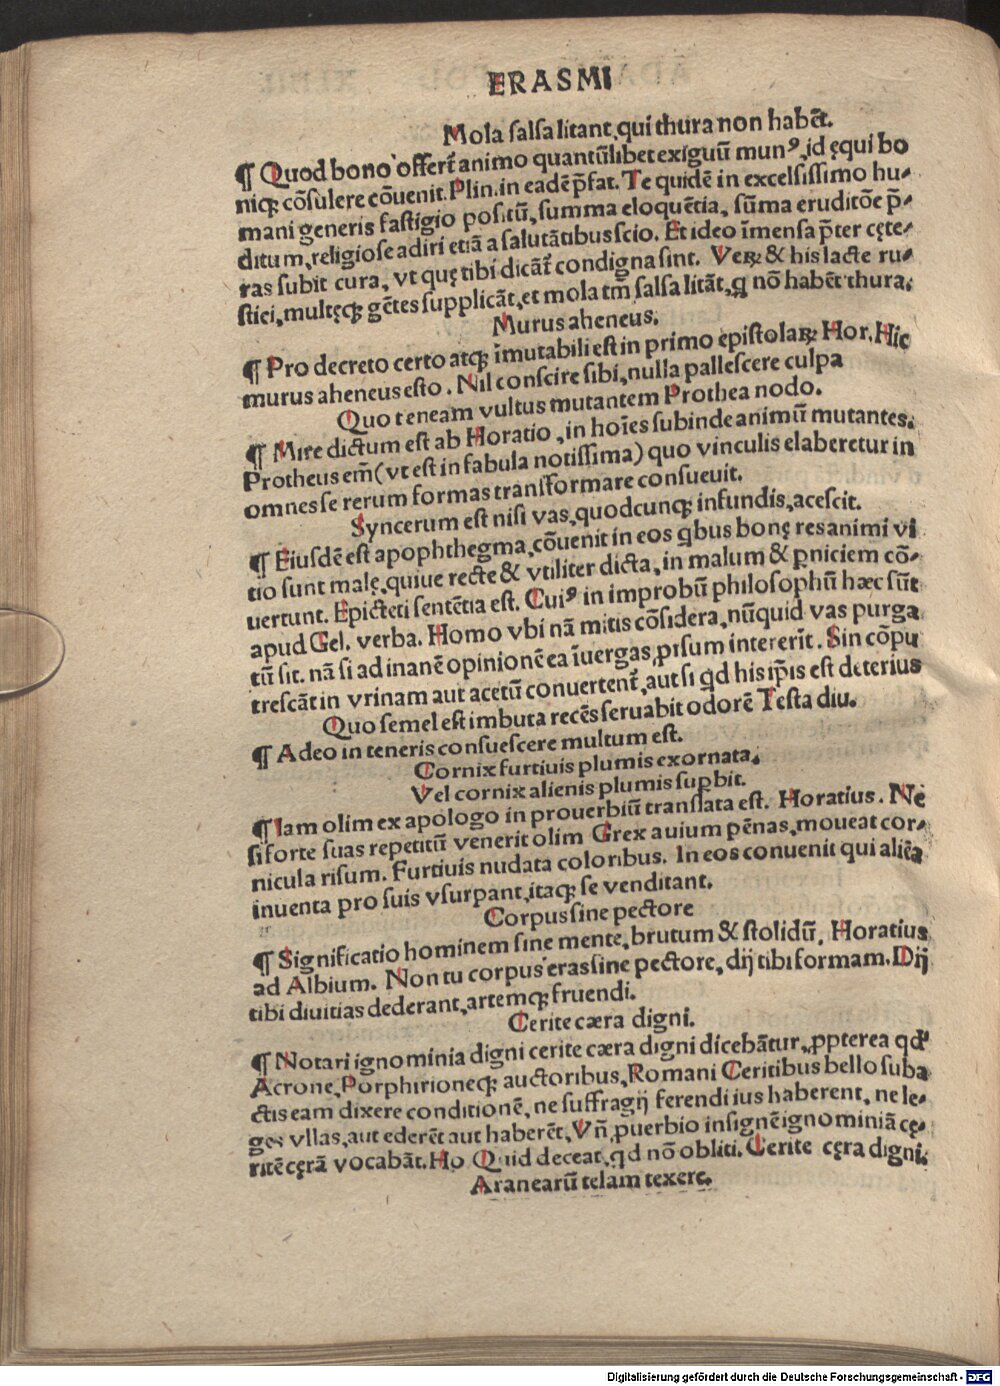 ERASMI
Mola salsa litant, qui thura non habēt.
¶ Quod bono offert᷑ animo quantūlibet exiguū munꝰ, id ęqui bo
niqꝫ cōsulere cōuenit. Plin. in eadē p̄fat. Te quidē in excelsissimo hu-
mani generis fastigio positū, summa eloquētia, sūma eruditōe p̄-
ditum, religiose adiri etiā a salutātibus scio. Et ideo īmensa p̄ter cęte-
ras subit cura, vt quę tibi dicāt᷑ condigna sint. Veꝝ & his lacte ru-
stici, multęqꝫ gētes supplicāt, et mola tm̄ salsa litāt, q nō habēt thura.
Murus aheneus.
¶ Pro decreto certo atqꝫ īmutabili est in primo epistolaꝝ Hor. Hic
murus aheneus esto. Nil conscire sibi, nulla pallescere culpa
Quo teneam vultus mutantem Prothea nodo.
¶ Mire dictum est ab Horatio, in hoīes subinde animū mutantes.
Protheus em̄ (vt est in fabula notissima) quo vinculis elaberetur in
omnes se rerum formas transformare consueuit.
Syncerum est nisi vas, quodcunqꝫ infundis, acescit.
¶ Eiusdē est apophthegma, cōuenit in eos qbus bonę res animi vi
tio sunt malę, quiue recte & vtiliter dicta, in malum & ꝑniciem cō-
uertunt. Epicteti sentētia est. Cuiꝰ in improbū philosophū hæc sūt
apud Gel. verba. Homo vbi nā mitis cōsidera, nūquid vas purga
tū sit. nā si ad inanē opinionē ea īuergas, ꝑisum intererīt. Sin cōpu
trescāt in vrinam aut acetū conuertent᷑, aut si qd his ip̄is est deterius
Quo semel est imbuta recēs seruabit odorē Testa diu.
¶ Adeo in teneris consuescere multum est.
Cornix furtiuis plumis exornata.
Vel cornix alienis plumis suꝑbit.
¶ Iam olim ex apologo in prouerbiū translata est. Horatius. Ne
si forte suas repetitū venerit olim Grex auium pēnas, moueat cor-
nicula risum. Furtiuis nudata coloribus. In eos conuenit qui aliēa
inuenta pro suis vsurpant, itaqꝫ se venditant.
Corpus sine pectore
¶ Significatio hominem sine mente, brutum & stolidū. Horatius
ad Albium. Non tu corpus eras sine pectore, dij tibi formam. Dij
tibi diuitias dederant, artemqꝫ fruendi.
Cerite cæra digni.
¶ Notari ignominia digni cerite cæra digni dicebātur, ꝓpterea qd
Acrone, Porphirioneqꝫ auctoribus, Romani Ceritibus bello suba
ctis eam dixere conditionē, ne suffragij ferendi ius haberent, ne le-
ges vllas, aut ederēt aut haberēt, Vn̄, ꝓuerbio insignē ignominiā cę-
ritē cęrā vocabāt. Ho Quid deceat, qd nō obliti. Cerite cęra digni.
Aranearū telam texere.
Digitalisierung gefördert durch die Deutsche Forschungsgemeinschaft - DFG